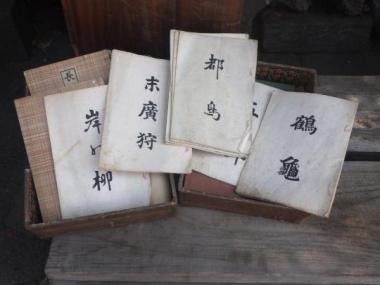 長
岸の柳
末廣狩
都鳥
鶴龜